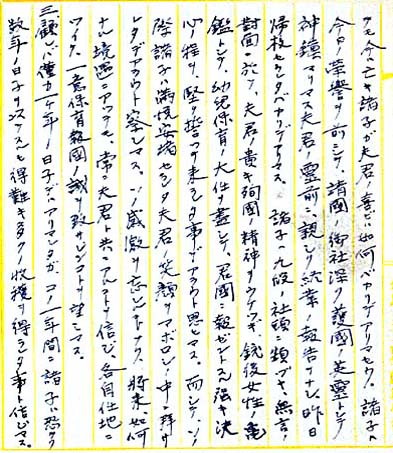 タモ今ハ亡キ諸子ガ夫君ノ喜ビハ如何バカリデアリマセウ。諸子ハ
今日ノ栄誉ヲ前ニシテ、靖國ノ御社深ク護國ノ英霊トシテ
神鎮マリマス夫君ノ霊前ニ、親シク統業ノ報告ヲナシ、昨日
帰校セラレタバカリデアリマス。諸子ハ九段ノ社頭ニ額ヅキ、無言ノ
対面ニ於テ、夫君ノ貴キ殉國ノ精神ヲウケツギ、銃後女性ノ亀
鑑トシテ、幼児保育ノ大任ヲ盡シテ、君國ニ報ゼントスル強キ決
心ヲ程リ、堅ク誓ッテ来ラレタ事デアラウト思ヒマス。而シテ、ソノ
際諸子ハ満悦安堵セラレタ夫君ノ笑顔ヲマボロシノ中ニ拝
レタデアラウト察シマス。ソノ感激ヲ忘レルコトナク、将来、如何
ナル境遇ニアッテモ、常ニ夫君ト共ニアルコトヲ信ジ、各自任地ニ
ツイテ、一意保育報國ノ誠ヲ致サレンコトヲ望ミマス。
三、顧レバ僅カ一ケ年ノ日子デハアリマシタガ、コノ一年間ニ諸子ハ恐ラク
数年ノ日子ヲツイヤスモ得難キ多クノ收獲ヲ得ラレタ事ト信ジマス。